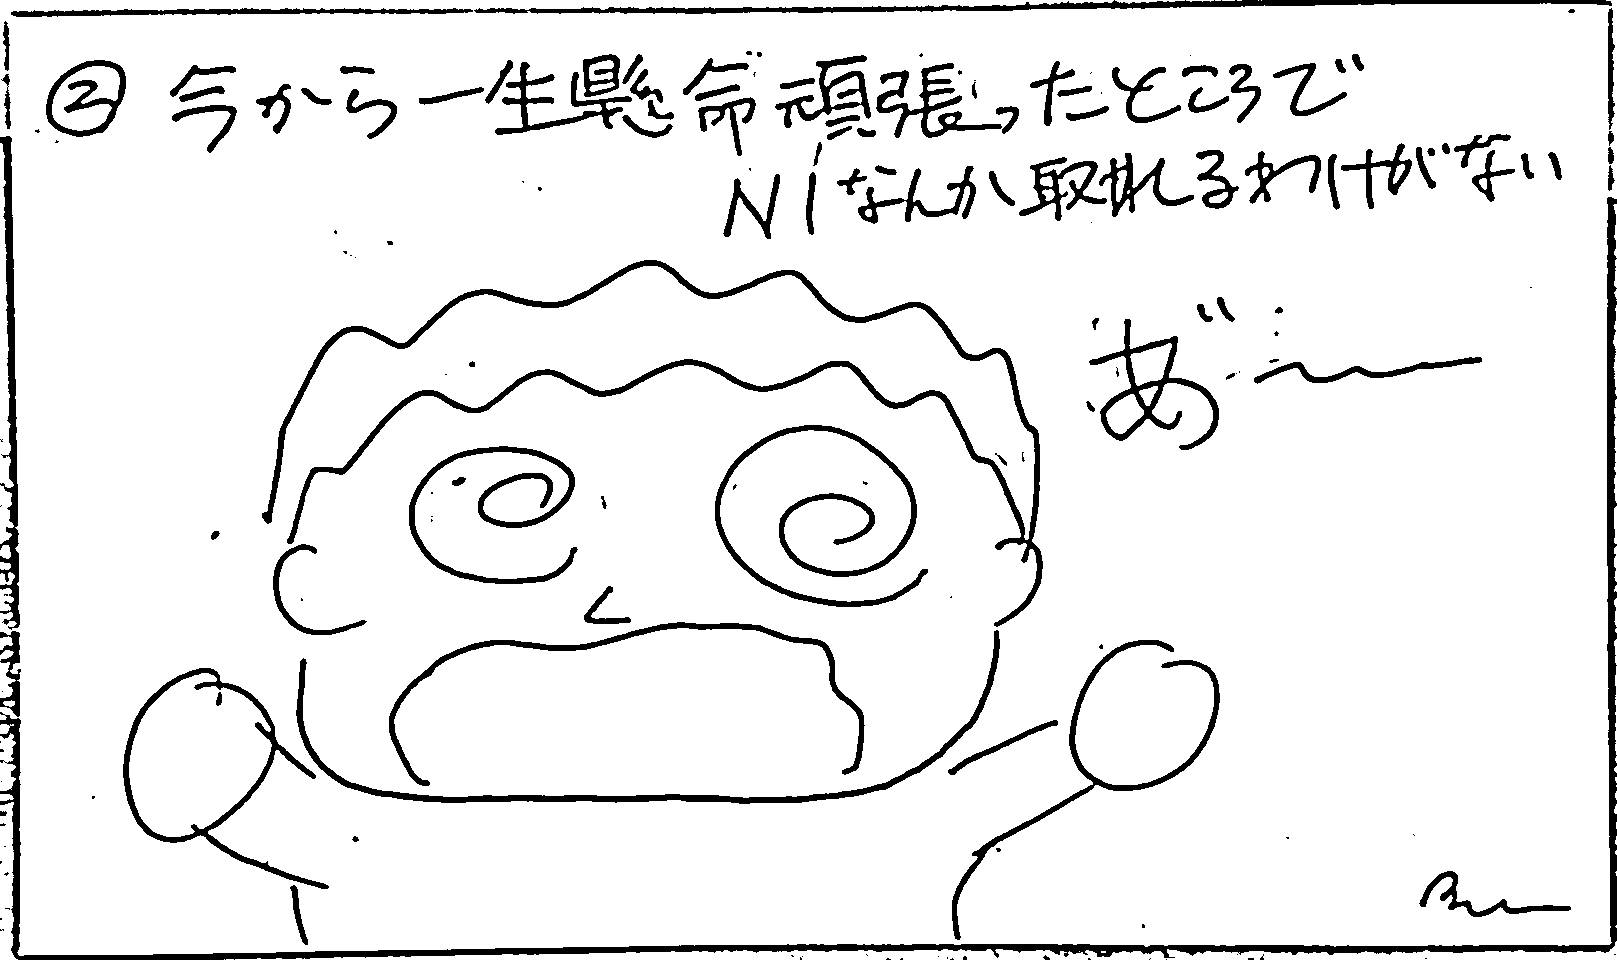 ② 今から一生懸命頑張ったところで
N1なんか取れるわけがない
あ゛〜